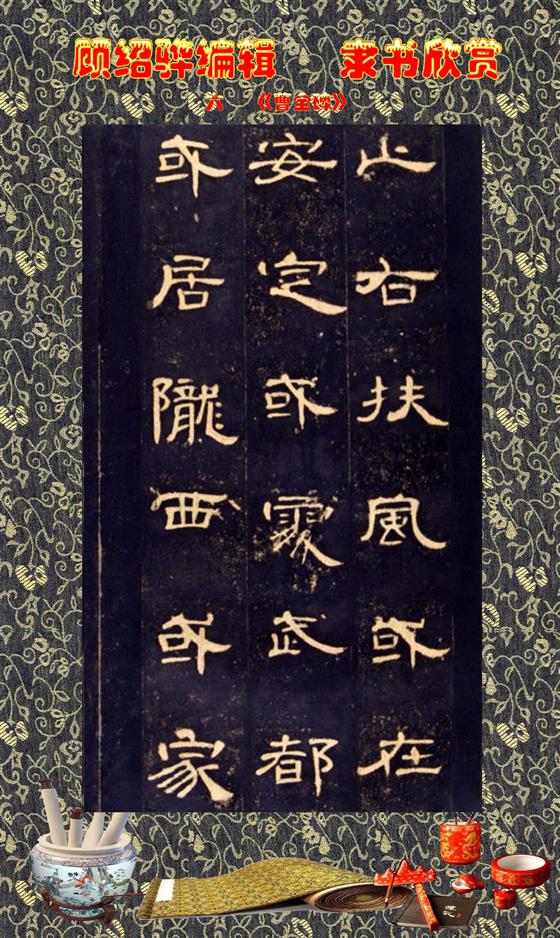 顾绍骅编辑 隶书欣赏
六 《曹全碑》
止右扶風或在
安定或處武都
或居隴西或家